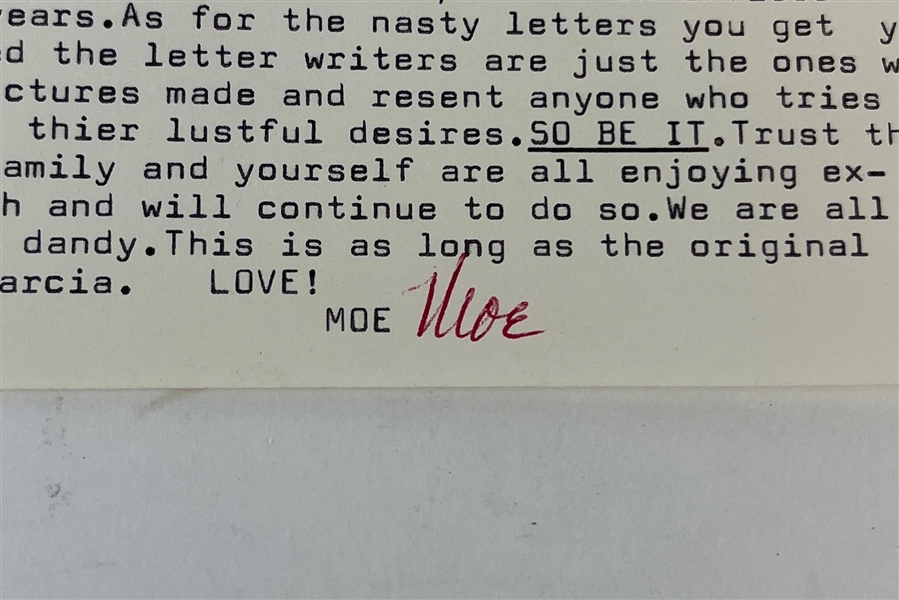 ears.As for the nasty letters you get y
ed the letter writers are just the ones w
ctures made and resent anyone who tries
thier lustful desires.SO BE IT.Trust th
amily and yourself are all enjoying ex-
h and will continue to do so.We are all
dandy.This is as long as the original
arcia. LOVE!
MOE Moe